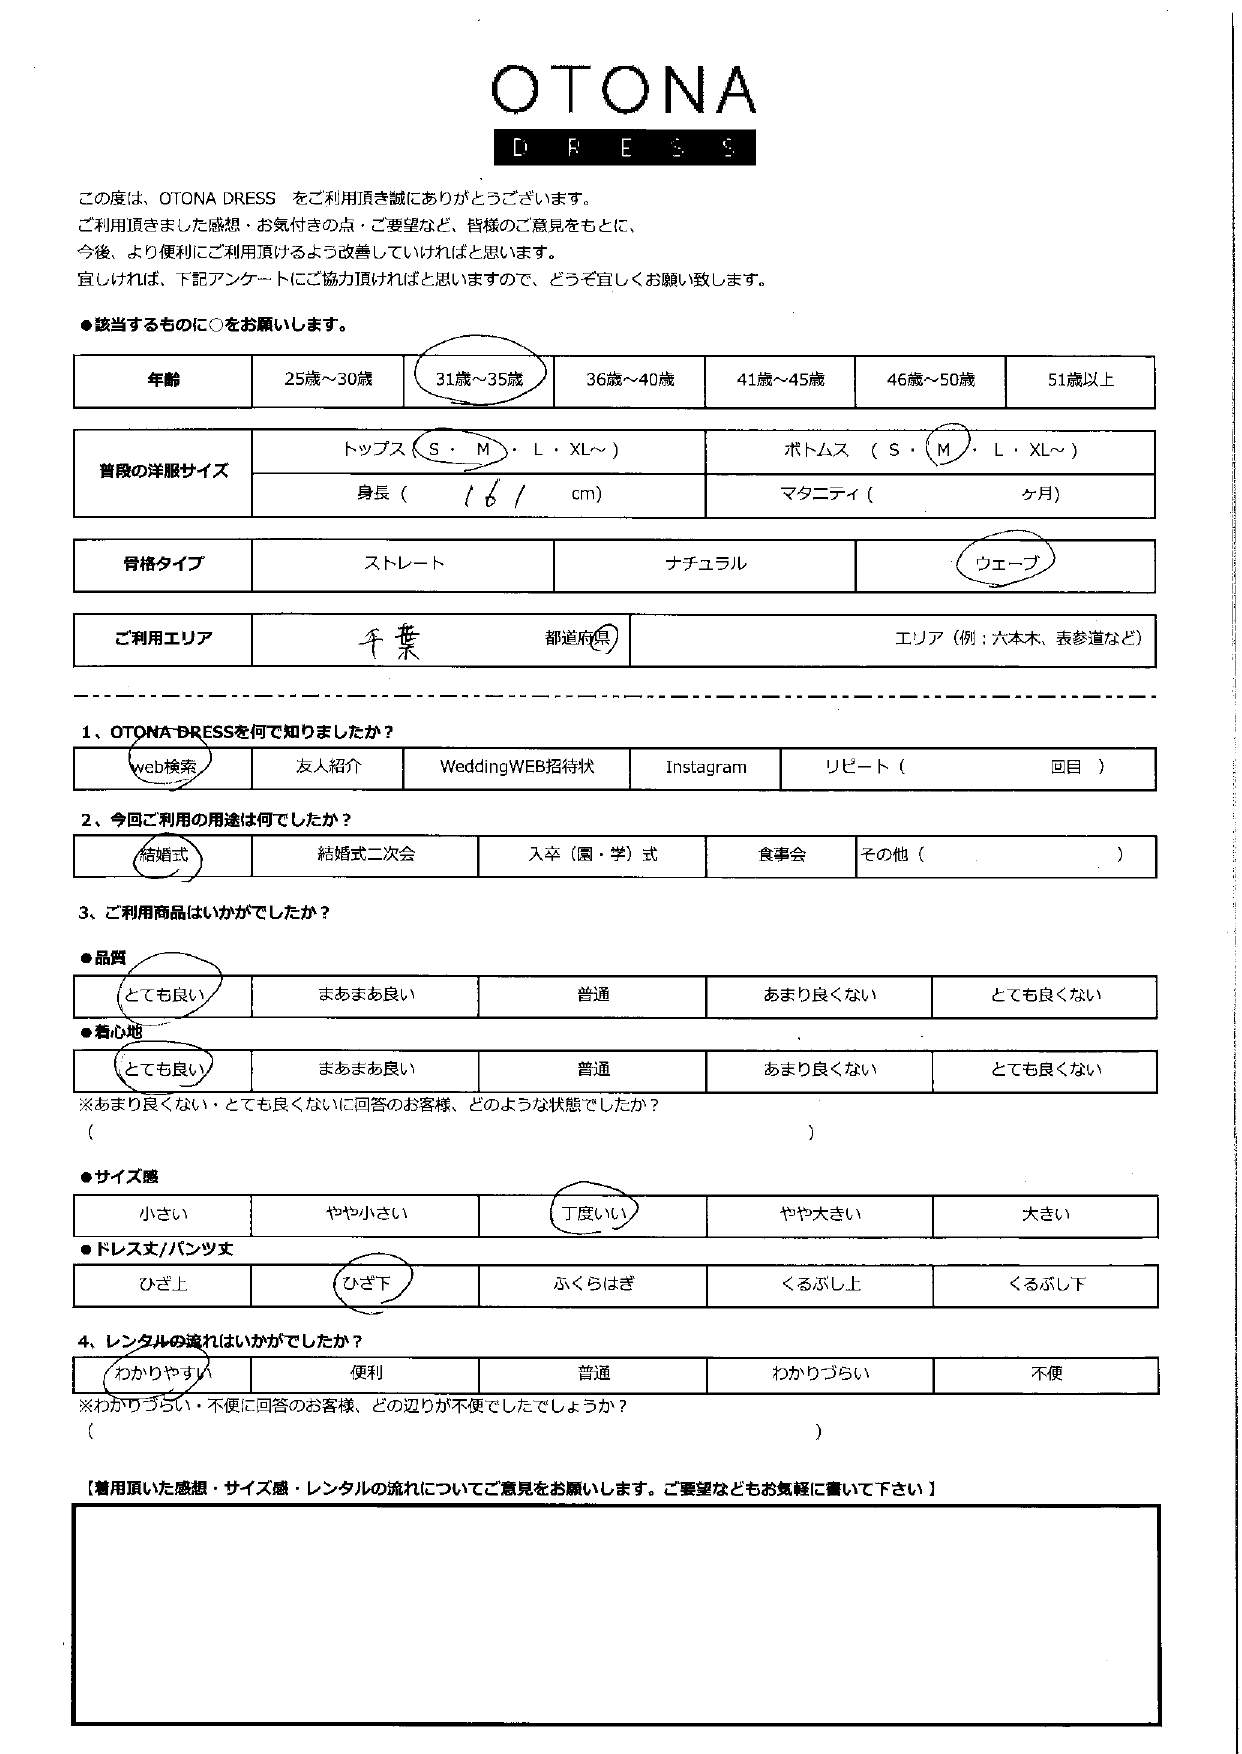 OTONA
DRESS
この度は、OTONA DRESS　をご利用頂き誠にありがとうございます。
ご利用頂きました感想・お気付きの点・ご要望など、皆様のご意見をもとに、
今後、より便利にご利用頂けるよう改善していければと思います。
宜しければ、下記アンケートにご協力頂ければと思いますので、どうぞ宜しくお願い致します。
●該当するものに○をお願いします。
年齢 25歳～30歳 31歳～35歳 36歳～40歳 41歳～45歳 46歳～50歳 51歳以上
普段の洋服サイズ トップス ( S ・ M ・ L ・ XL～ ) ボトムス ( S ・ M ・ L ・ XL～ )
身長 ( 161 cm) マタニティ ( ヶ月)
骨格タイプ ストレート ナチュラル ウェーブ
ご利用エリア 千葉 都道府県 エリア（例；六本木、表参道など）
1、OTONA DRESSを何で知りましたか？
web検索 友人紹介 WeddingWEB招待状 Instagram リピート（ 回目 ）
2、今回ご利用の用途は何でしたか？
結婚式 結婚式二次会 入卒（園・学）式 食事会 その他（ ）
3、ご利用商品はいかがでしたか？
●品質
とても良い まあまあ良い 普通 あまり良くない とても良くない
●着心地
とても良い まあまあ良い 普通 あまり良くない とても良くない
※あまり良くない・とても良くないに回答のお客様、どのような状態でしたか？
（ ）
●サイズ感
小さい やや小さい 丁度いい やや大きい 大きい
●ドレス丈/パンツ丈
ひざ上 ひざ下 ふくらはぎ くるぶし上 くるぶし下
4、レンタルの流れはいかがでしたか？
わかりやすい 便利 普通 わかりづらい 不便
※わかりづらい・不便に回答のお客様、どの辺りが不便でしたでしょうか？
（ ）
【着用頂いた感想・サイズ感・レンタルの流れについてご意見をお願いします。ご要望などもお気軽に書いて下さい】